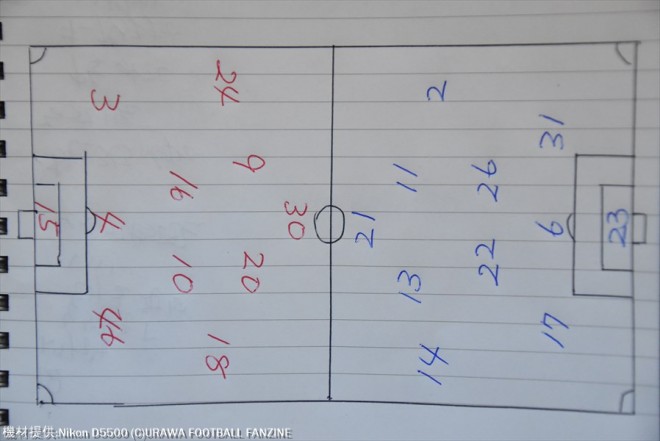 24
2
3
31
9
11
26
16
15
4
30
21
6
23
20
22
10
13
46
18
14
17
機材提供:Nikon D5500 (C)URAWA FOOTBALL FANZINE